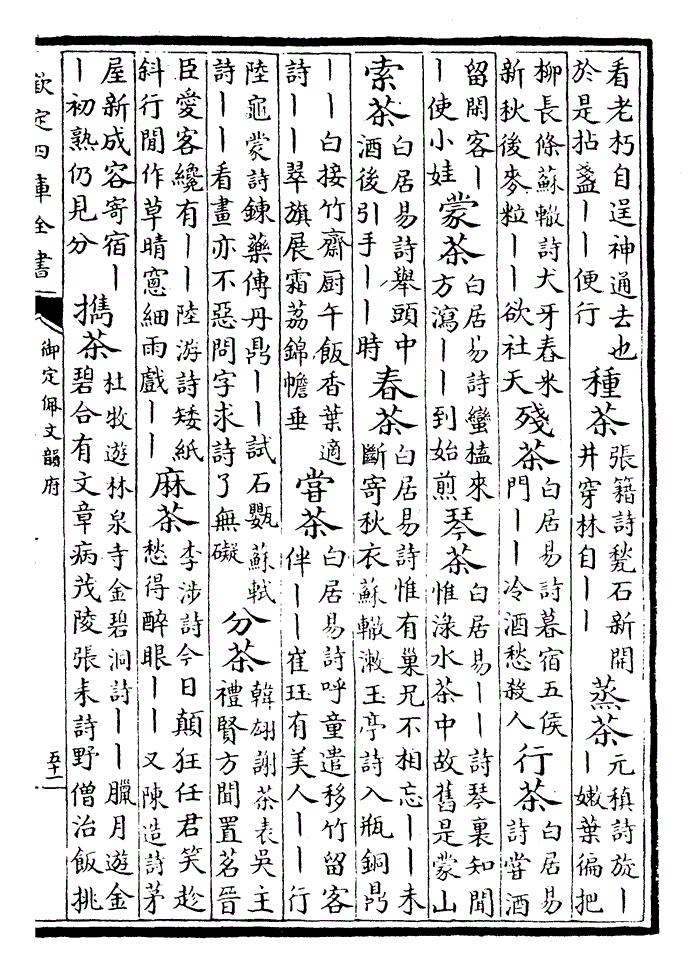 看老朽自逞神通去也
於是拈盞丨丨便行
種茶
張籍詩甃石新開
井穿林自丨丨
蒸茶
元稹詩旋丨
丨嫩葉徧把
柳長條蘇轍詩犬牙舂米
新秋後麥粒丨丨欲社天
殘茶
白居易詩暮宿五侯
門丨丨冷酒愁殺人
行茶
白居易
詩嘗酒
留閒客丨
丨使小娃
蒙茶
白居易詩蠻榼來
方瀉丨丨到始煎
琴茶
白居易丨丨詩琴裏知聞
惟淥水茶中故舊是蒙山
索茶
白居易詩舉頭中
酒後引手丨丨時
春茶
白居易詩惟有巢兄不相忘丨丨未
斷寄秋衣蘇轍漱玉亭詩入瓶銅鼎
丨丨白接竹齋厨午飯香葉適
詩丨丨翠旗展霜荔錦幨垂
嘗茶
白居易詩呼童遣移竹留客
伴丨丨崔珏有美人丨丨行
陸龜蒙詩鍊藥傳丹鼎丨丨試石甖蘇軾
詩丨丨看畫亦不惡問字求詩了無礙
分茶
韓翃謝茶表吳主
禮賢方聞置茗晉
臣愛客纔有丨丨陸游詩矮紙
斜行閒作草晴窻細雨戲丨丨
麻茶
李涉詩今日顛狂任君笑趁
愁得醉眼丨丨又陳造詩茅
屋新成容寄宿丨
丨初熟仍見分
擕茶
杜牧遊林泉寺金碧洞詩丨丨臘月遊金
碧合有文章病茂陵張耒詩野僧治飯挑
欽定四庫全書
御定佩文韻府
五十二